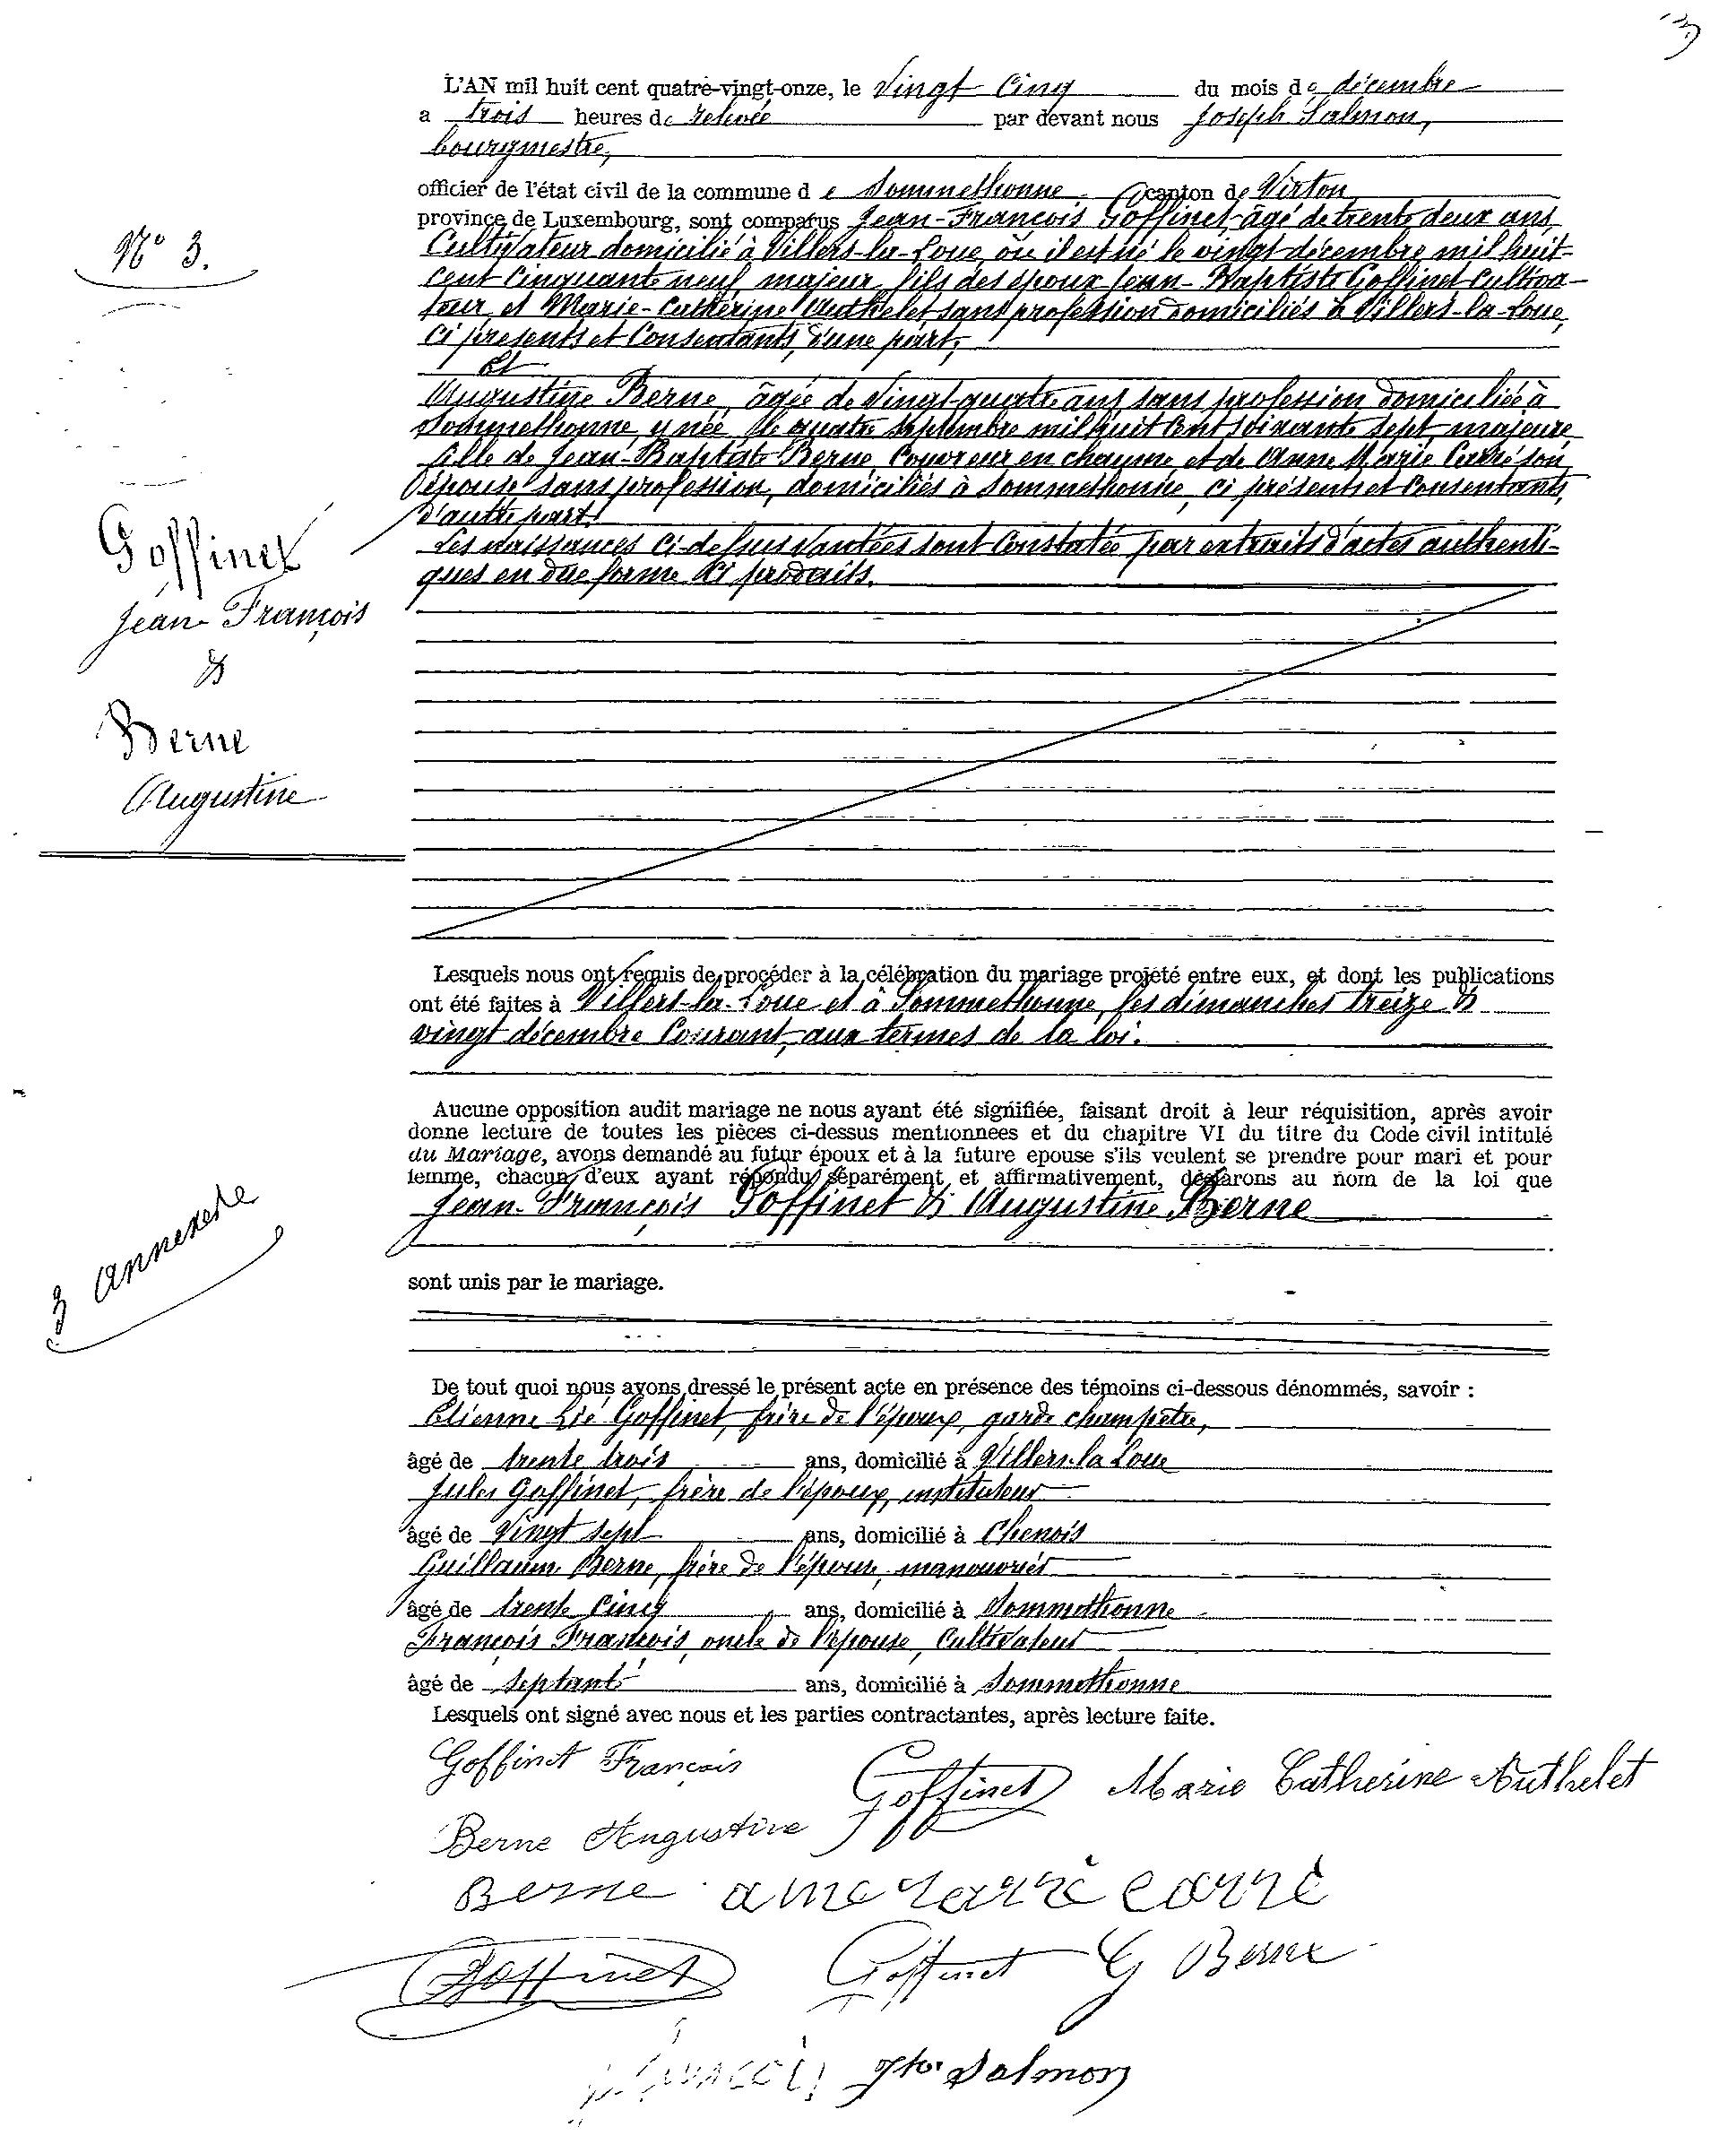 3
L'AN mil huit cent quatre-vingt-onze, le Vingt Cinq du mois de décembre
a trois heures de relevée par devant nous Joseph Salmon,
bourgmestre,
officier de l'état civil de la commune de Sommethonne canton de Virton
province de Luxembourg, sont comparus Jean-François Goffinet, âgé de trente deux ans,
Cultivateur domicilié à Villers-la-Loue, où il est né le vingt décembre mil huit
cent cinquante neuf, majeur, fils des époux Jean-Baptiste Goffinet Cultiva-
teur, et Marie-Catherine Authelet, sans profession domiciliés à Villers-la-Loue,
ci présents et Consentants, d'une part,
Et
Augustine Berne, âgée de Vingt-quatre ans sans profession domiciliée à
Sommethonne, y née, le quatre septembre mil huit cent soixante sept, majeure,
fille de Jean-Baptiste Berne, Couvreur en chaume, et de Anne Marie Carré son
épouse sans profession, domiciliés à Sommethonne, ci présents et Consentants,
d'autre part.
Les naissances ci-dessus vantées sont Constatée par extraits d'actes authenti-
ques en due forme ci produits.
N° 3.
Goffinet
Jean-François
&
Berne
Augustine
Lesquels nous ont requis de procéder à la célébration du mariage projeté entre eux, et dont les publications
ont été faites à Villers-la-Loue et à Sommethonne, les dimanches treize &
vingt décembre Courant, aux termes de la loi.
Aucune opposition audit mariage ne nous ayant été signifiée, faisant droit à leur réquisition, après avoir
donne lecture de toutes les pièces ci-dessus mentionnees et du chapitre VI du titre du Code civil intitulé
du Mariage, avons demandé au futur époux et à la future epouse s'ils veulent se prendre pour mari et pour
femme, chacun d'eux ayant répondu séparément et affirmativement, déclarons au nom de la loi que
Jean-François Goffinet & Augustine Berne
3 annexes
sont unis par le mariage.
De tout quoi nous avons dressé le présent acte en présence des témoins ci-dessous dénommés, savoir :
Etienne Lié Goffinet, frère de l'époux, garde champêtre,
âgé de trente trois ans, domicilié à Villers-la Loue
Jules Goffinet, frère de l'époux, instituteur
âgé de Vingt sept ans, domicilié à Chenois
Guillaume Berne, frère de l'épouse, manouvrier
âgé de trente Cinq ans, domicilié à Sommethonne
François François, oncle de l'épouse, Cultivateur
âgé de Septante ans, domicilié à Sommethonne
Lesquels ont signé avec nous et les parties contractantes, après lecture faite.
Goffinet François Goffinet Marie Catherine Authelet
Berne Augustine
Berne carré
Goffinet Goffinet G Berne
françois Jh Salmon